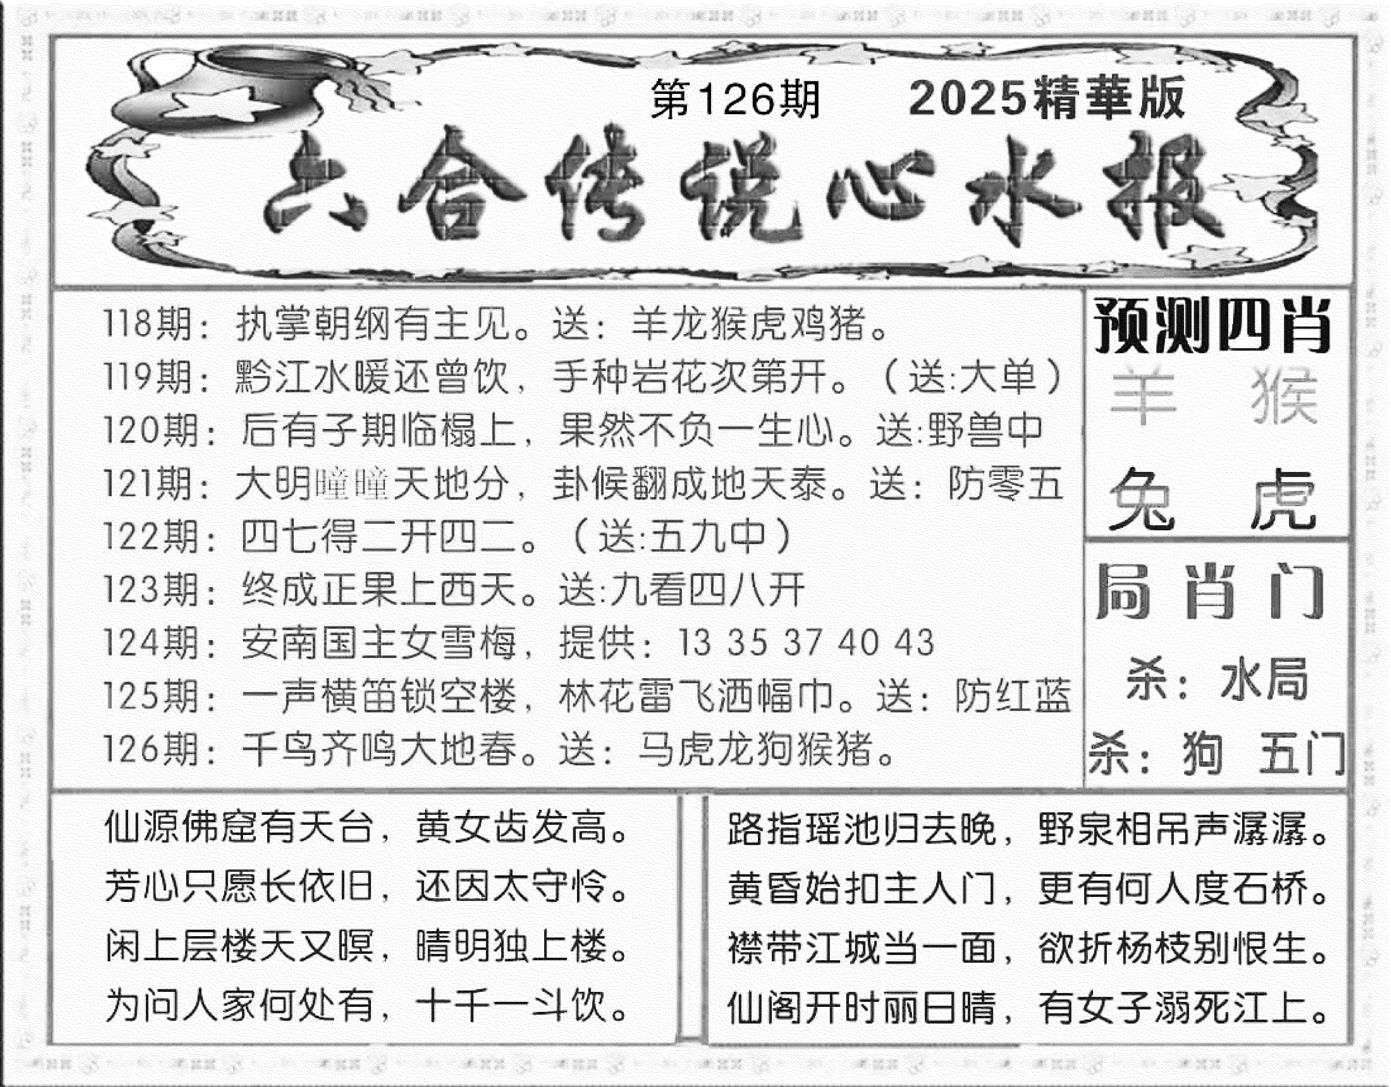 第126期 2025精華版
六合传说心水报
118期：执掌朝纲有主见。送：羊龙猴虎鸡猪。
119期：黔江水暖还曾饮，手种岩花次第开。（送:大单）
120期：后有子期临榻上，果然不负一生心。送:野兽中
121期：大明曈曈天地分，卦候翻成地天泰。送：防零五
122期：四七得二开四二。（送:五九中）
123期：终成正果上西天。送:九看四八开
124期：安南国主女雪梅，提供：13 35 37 40 43
125期：一声横笛锁空楼，林花雷飞洒幅巾。送：防红蓝
126期：千鸟齐鸣大地春。送：马虎龙狗猴猪。
预测四肖
羊 猴
兔 虎
局肖门
杀：水局
杀：狗 五门
仙源佛窟有天台，黄女齿发高。
芳心只愿长依旧，还因太守怜。
闲上层楼天又暝，晴明独上楼。
为问人家何处有，十千一斗饮。
路指瑶池归去晚，野泉相吊声潺潺。
黄昏始扣主人门，更有何人度石桥。
襟带江城当一面，欲折杨枝别恨生。
仙阁开时丽日晴，有女子溺死江上。